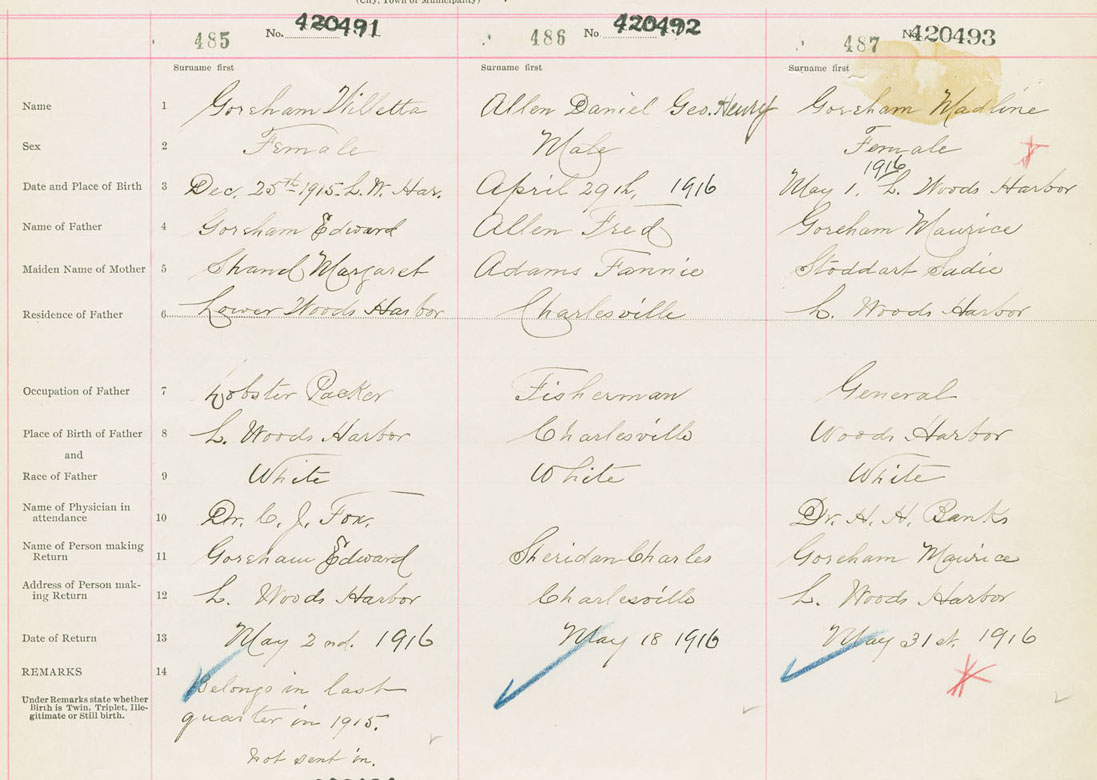 (City, Town or Municipality)
485 No. 420491 486 No 420492 487 No 420493
Surname first Surname first Surname first
Name 1 Goreham Willetta Allen Daniel Geo. Henry Goreham Madline
Sex 2 Female Male Female
1916
Date and Place of Birth 3 Dec. 25th 1915. L. W. Har. April 29th, 1916 May 1. L. Woods Harbor
Name of Father 4 Goreham Edward Allen Fred Goreham Maurice
Maiden Name of Mother 5 Shand Margaret Adams Fannie Stoddart Sadie
Residence of Father 6 Lower Woods Harbor Charlesville L. Woods Harbor
Occupation of Father 7 Lobster Packer Fisherman General
Place of Birth of Father 8 L. Woods Harbor Charlesville Woods Harbor
and
Race of Father 9 White White White
Name of Physician in
attendance 10 Dr. C. J. Fox. Dr. H. H. Banks
Name of Person making
Return 11 Goreham Edward Sheridan Charles Goreham Maurice
Address of Person mak-
ing Return 12 L. Woods Harbor Charlesville L. Woods Harbor
Date of Return 13 May 2nd. 1916 May 18 1916 May 31st. 1916
REMARKS 14
Under Remarks state whether
Birth is Twin, Triplet, Ille-
gitimate or Still birth.
Belongs in last
quarter in 1915.
not sent in.